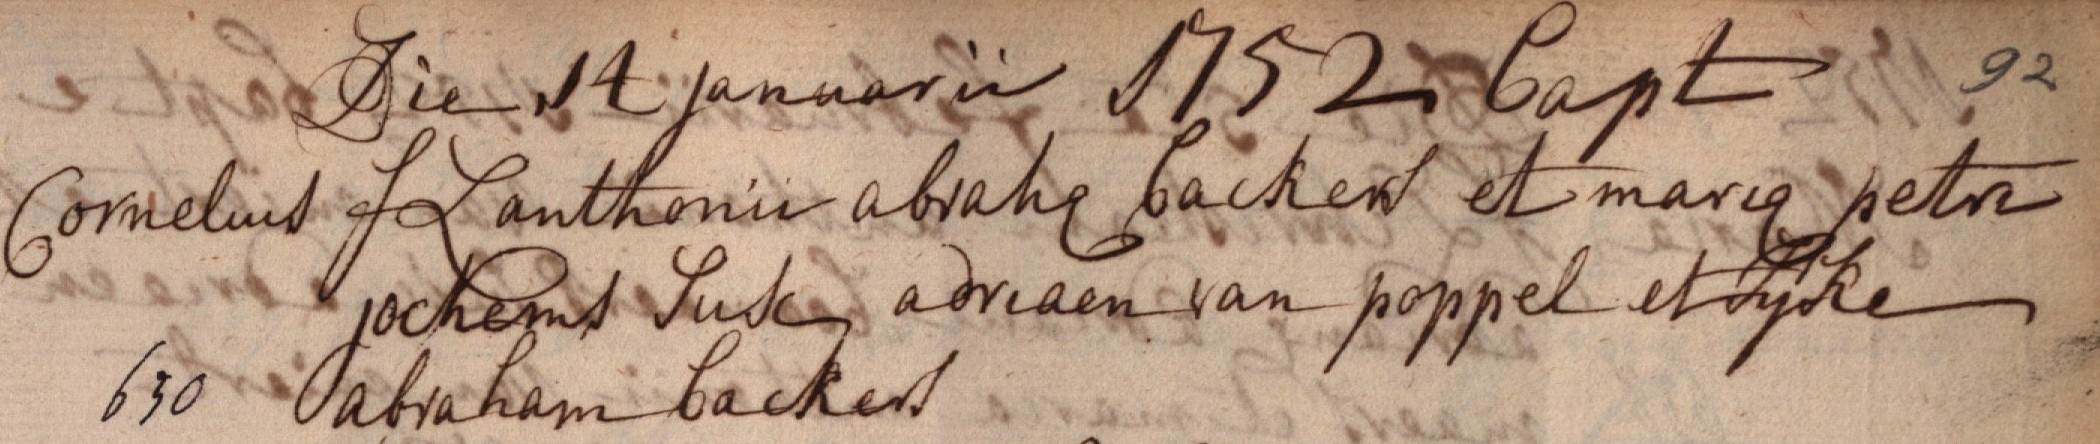 Die 14 januarii 1752 bapt 92
Cornelius f L anthonii abrahae backers et maria petri
jochems Susc adriaen van poppel et Lyske
630 abraham backers